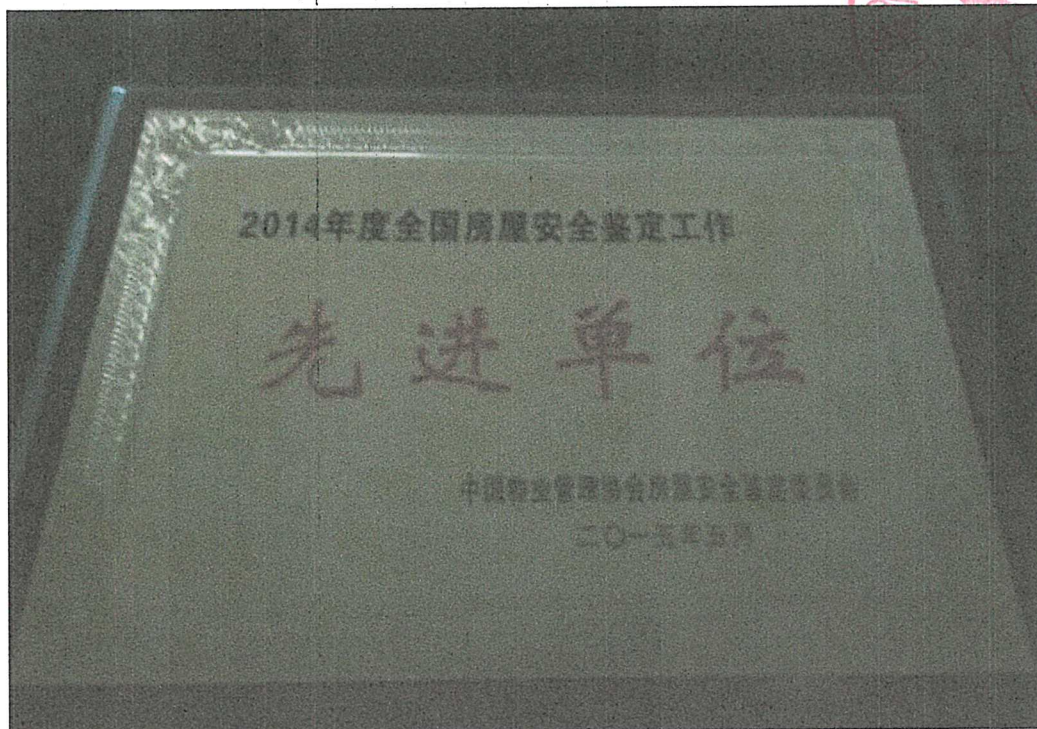 2014年度全国房屋安全鉴定工作
先进单位
中国物业管理协会房屋安全鉴定委员会
二〇一五年五月